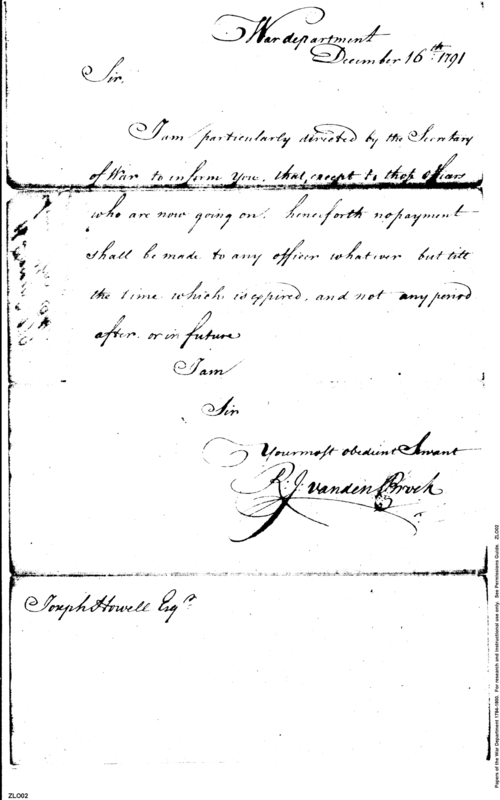 War department
December 16th 1791
Sir.
I am particularly directed by the Secretary
of War to inform you, that, except to those officers
who are now going on. henceforth no payment
shall be made to any officer whatever but till
the time which is expired, and not any period
after or in future
I am
Sir
Your most obedient Servant
R. J. vanden Broek
Joseph Howell Esqr
ZLO02
Papers of the War Department 1784-1800. For research and instructional use only. See Permissions Guide. ZLO02